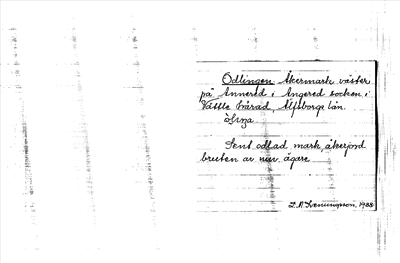 Odlingen Åkermark väster
på Annered i Angered socken i
Vättle härad, Älfsborgs län.
Sent odlad mark, åkerjord
bruten av nuv. ägare
1938